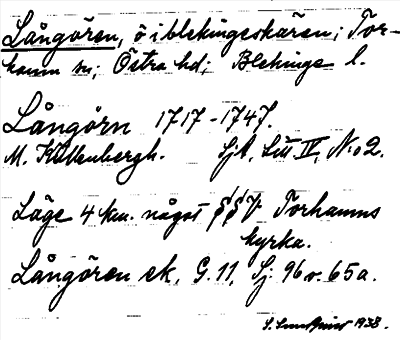 Långören, ö i blekingeskären; Tor-
hamn sn; Östra hd; Blekinge l.
Långörn 1717-1747.
M. Källenbergh. SjA, Litt IV, No 2.
Läge 4 km. något S/SV Torhamns
kyrka.
Långören ek. G.11, Sj 96 v. 65 a.
S. Lundqvist 1938.